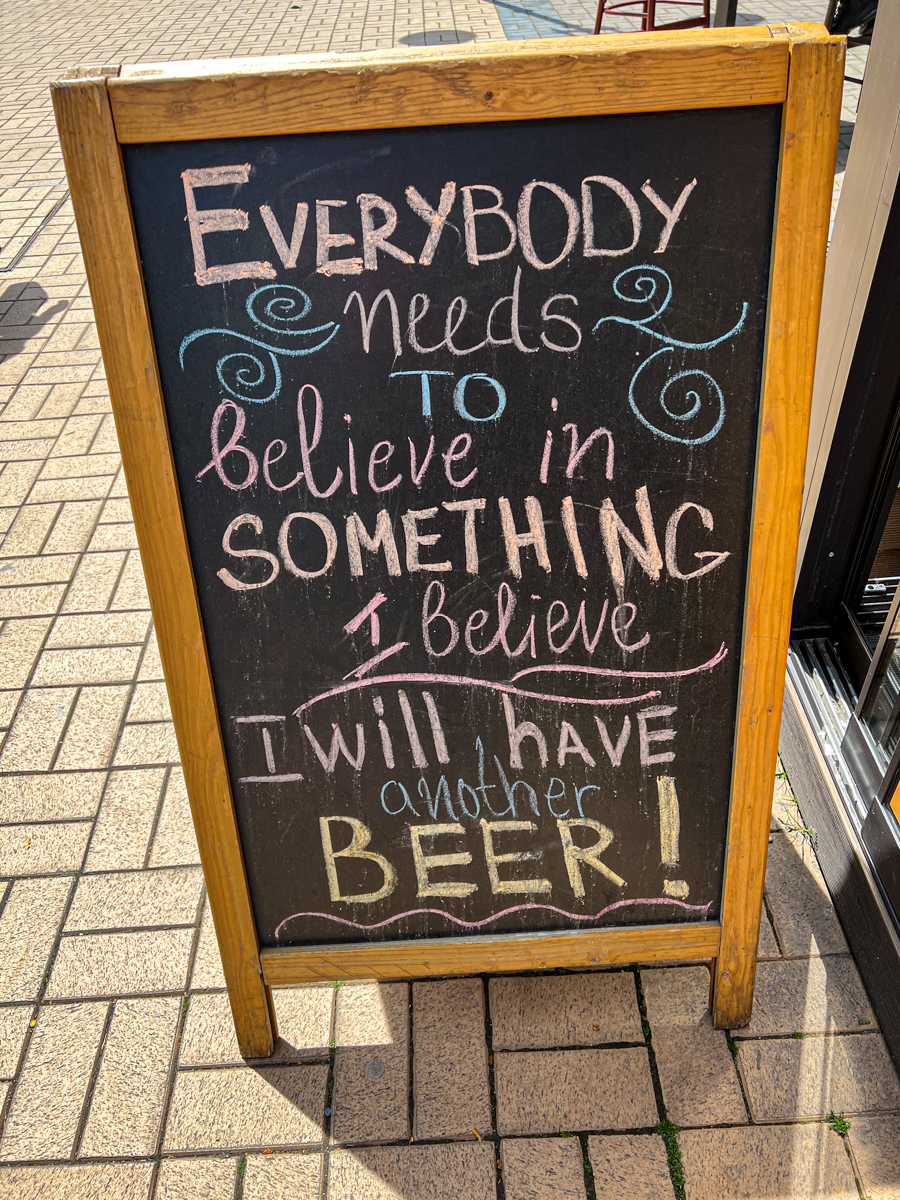 EVERYBODY
needs
TO
believe in
SOMETHING
I believe
I will hAVE
another
BEER!